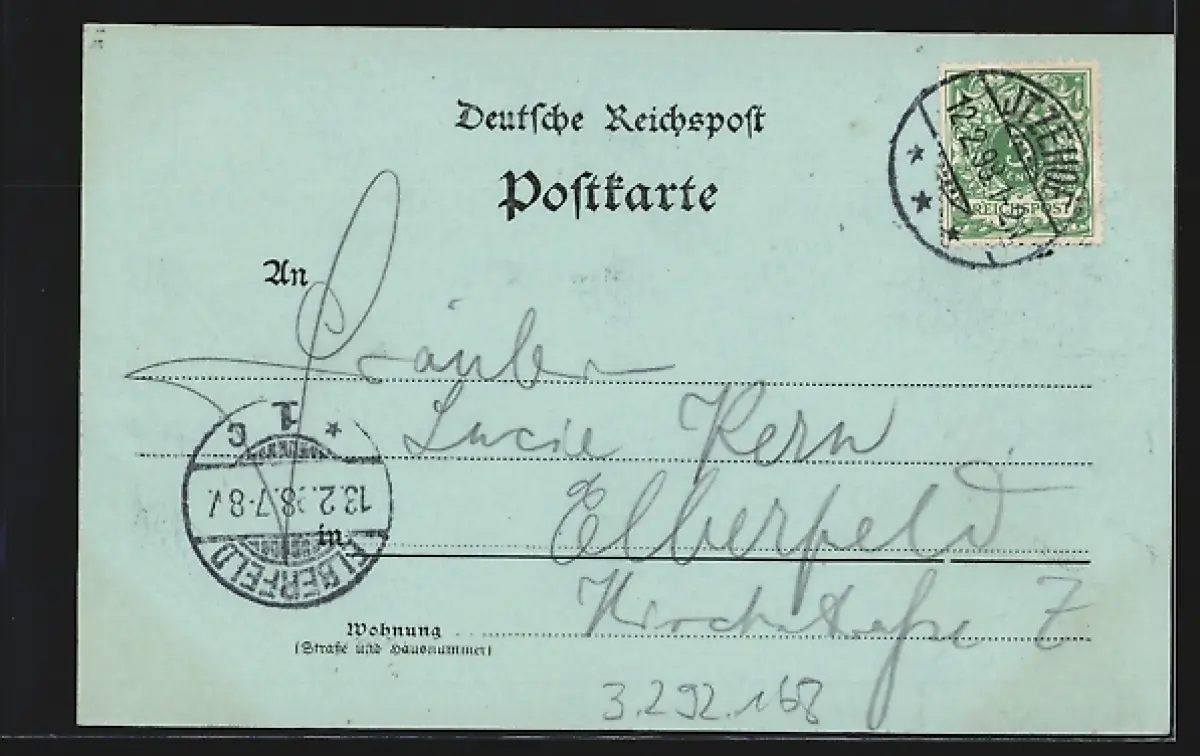 Deutsche Reichspost
Postkarte
ITZEHOE
12.2.98.
REICHSPOST
An
Fräulein
Lucie Kern
1 c
13.2.98.7-8V
in
ELBERFELD
Elberfeld
Wohnung
(Straße und Hausnummer)
Kirchstraße 7
3.292.168